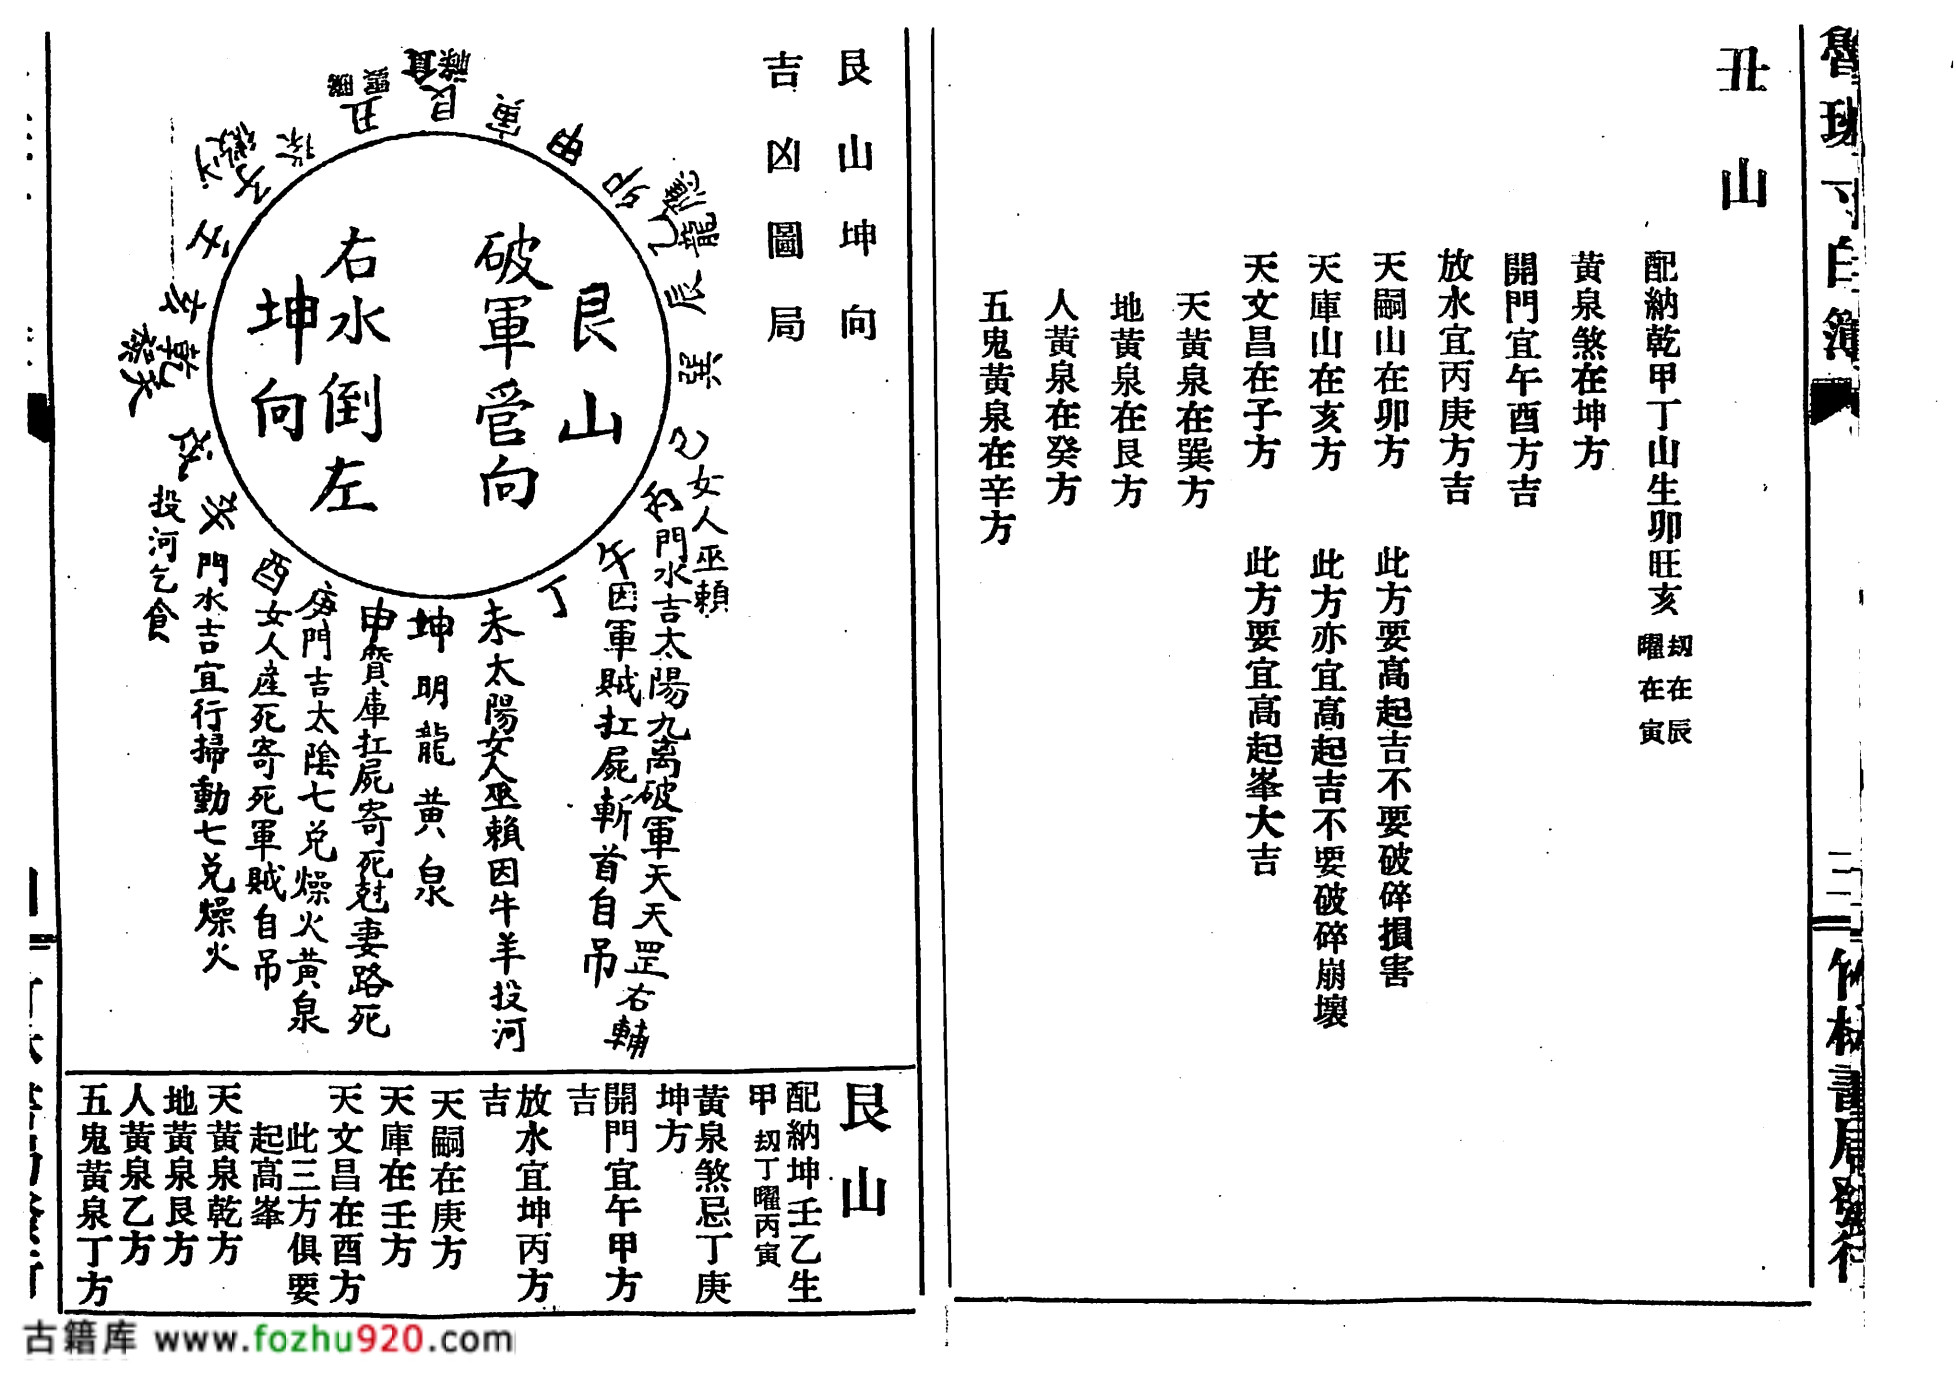 魯班寸白簿
二
竹林書局發行
丑山
配納乾甲丁山生卯旺亥
刼在辰
曜在寅
黃泉煞在坤方
開門宜午酉方吉
放水宜丙庚方吉
天嗣山在卯方 此方要高起吉不要破碎損害
天庫山在亥方 此方亦宜高起吉不要破碎崩壞
天文昌在子方 此方要宜高起峯大吉
天黃泉在巽方
地黃泉在艮方
人黃泉在癸方
五鬼黃泉在辛方
艮山坤向
吉凶圖局
艮山
破軍管向
右水倒左
坤向
丑
艮
寅
甲
卯
乙
辰
巽
巳女人巫賴
丙門水吉太陽九离破軍天天罡右輔
午因軍賊扛屍斬首自吊
丁
未太陽女人巫賴因牛羊投河
坤明龍黃泉
申質庫扛屍寄死尅妻路死
庚門吉太陰七兌燥火黃泉
酉女人產死寄死軍賊自吊
門水吉宜行掃動七兌燥火
投河乞食
乾
艮山
配納坤壬乙生
甲 刼丁曜丙寅
黃泉煞忌丁庚
坤方
開門宜午甲方
吉
放水宜坤丙方
吉
天嗣在庚方
天庫在壬方
天文昌在酉方
此三方俱要
起高峯
天黃泉乾方
地黃泉艮方
人黃泉乙方
五鬼黃泉丁方
古籍库 www.fozhu920.com